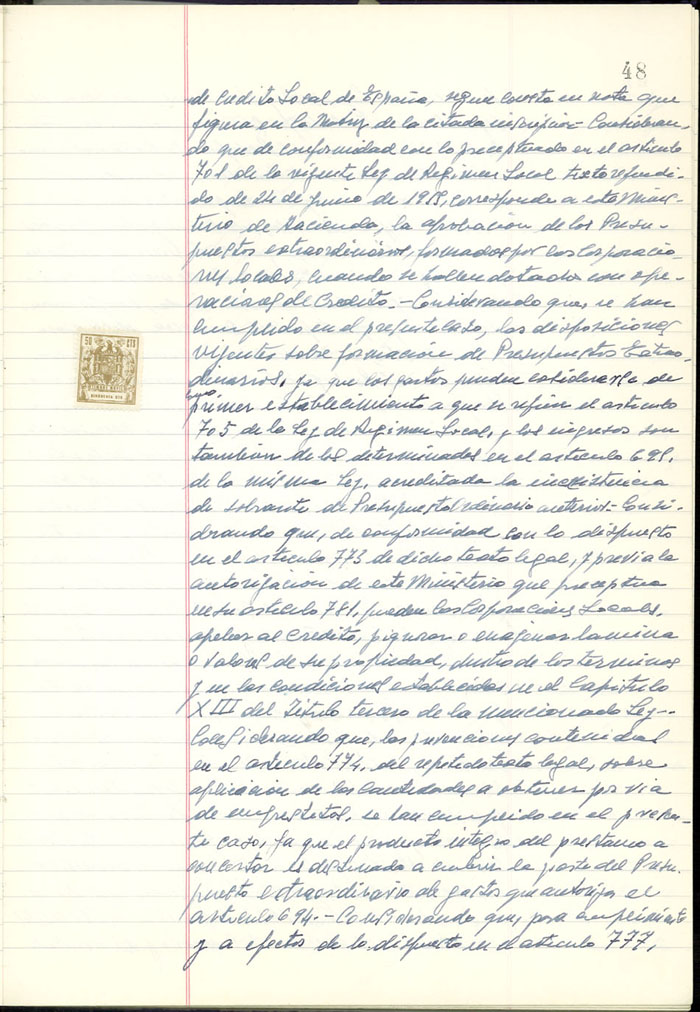 48
de Credito Local de España, segun consta en nota que
figura en la Matriz de la citada inscripcion - Consideran-
do que de conformidad con lo preceptuado en el articulo
701 de la vigente Ley de Regimen Local texto refundi-
do de 24 de Junio de 1955, corresponde a este Minis-
terio de Hacienda, la aprobacion de los Presu-
puestos extraordinarios, formados por las Corporacio-
nes Locales, cuando se hallen dotados con ope-
raciones de Credito. - Considerando que, se han
cumplido en el presente caso, las disposiciones
vigentes sobre formación de Presupuestos Extraor-
dinarios, ya que los gastos pueden considerarse de
primer establecimiento a que se refiere el articulo
705 de la Ley de Regimen Local, y los ingresos son
tambien de los determinados en el articulo 695,
de la misma Ley, acreditada la inexistencia
de sobrante de Presupuesto Ordinario anterior - Consi-
derando que, de conformidad con lo dispuesto
en el articulo 773 de dicho texto legal, y previa la
autorización de este Ministerio que preceptua
en su articulo 781, pueden las Corporaciones Locales,
apelar al credito, pignorar o enajenar lamina
o valores de su propiedad, dentro de los terminos
y en las condiciones establecidas en el Capitulo
XIII del Titulo tercero de la mencionada Ley -
Considerando que, las prevenciones contenidas
en el articulo 774, del repetido texto legal, sobre
aplicacion de las cantidades a obtener por via
de emprestitos, se han cumplido en el presen-
te caso, ya que el producto integro del prestamo a
concertar es destinado a cubrir la parte del Presu-
puesto extraordinario de gastos que autoriza el
articulo 694. - Considerando que, para cumplimiento
y a efectos de lo dispuesto en el articulo 777,
50 CTS